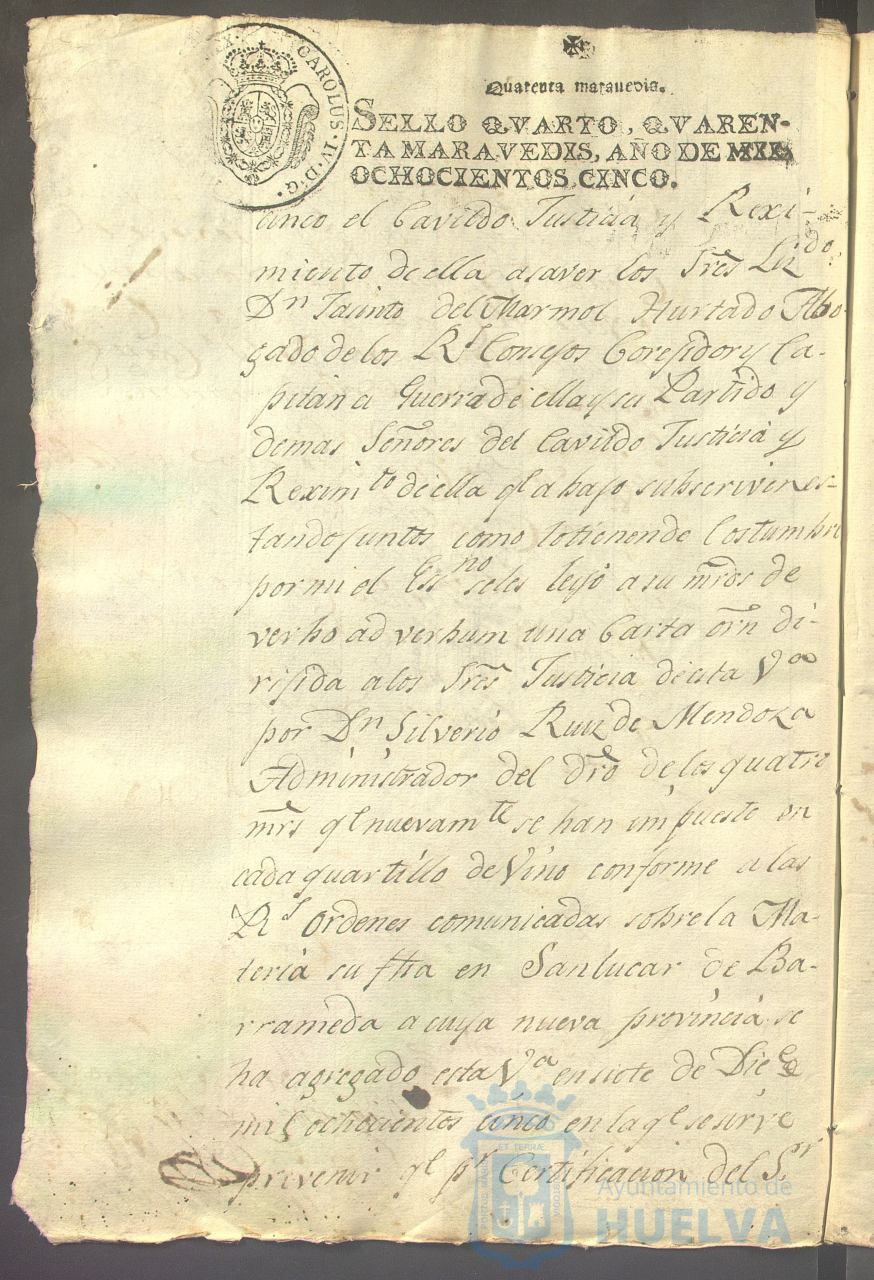 CAROLUS·IV·D·G·
Quarenta marauedis.
SELLO QVARTO, QVAREN-
TA MARAVEDIS, AÑO DE MIL
OCHOCIENTOS CINCO.
cinco el Cavildo Justicia y Rexi-
miento de ella asaver los Sres Lizdo
Dn Jacinto del Marmol Hurtado Abo-
gado de los Rs Consejos Corexidor y Ca-
pitan a Guerra de ella y su Partido y
demas Señores del Cavildo Justicia y
Reximto de ella qe abajo subscriven es-
tando juntos como lo tienen de Costumbre
por mi el Essno se les leyó a su mrds de
verbo ad verbum una Carta orn di-
rijida a los Sres Justicia de esta Va
por Dn Silverio Ruiz de Mendoza
Administrador del dro de los quatro
mrs qe nuevamte se han impuesto en
cada quartillo de Vino conforme a las
Rs Ordenes comunicadas sobre la Ma-
teria su fha en Sanlucar de Ba-
rrameda a cuya nueva provincia se
ha agregado esta Va en siete de Dice
mil ochocientos cinco en la qe se sirve
prevenir qe pr Certificacion del Sr
Ayuntamiento de
HUELVA